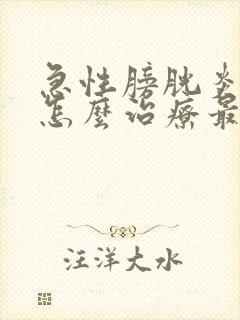 急性膀胱炎
怎麼治療最
汪洋大水